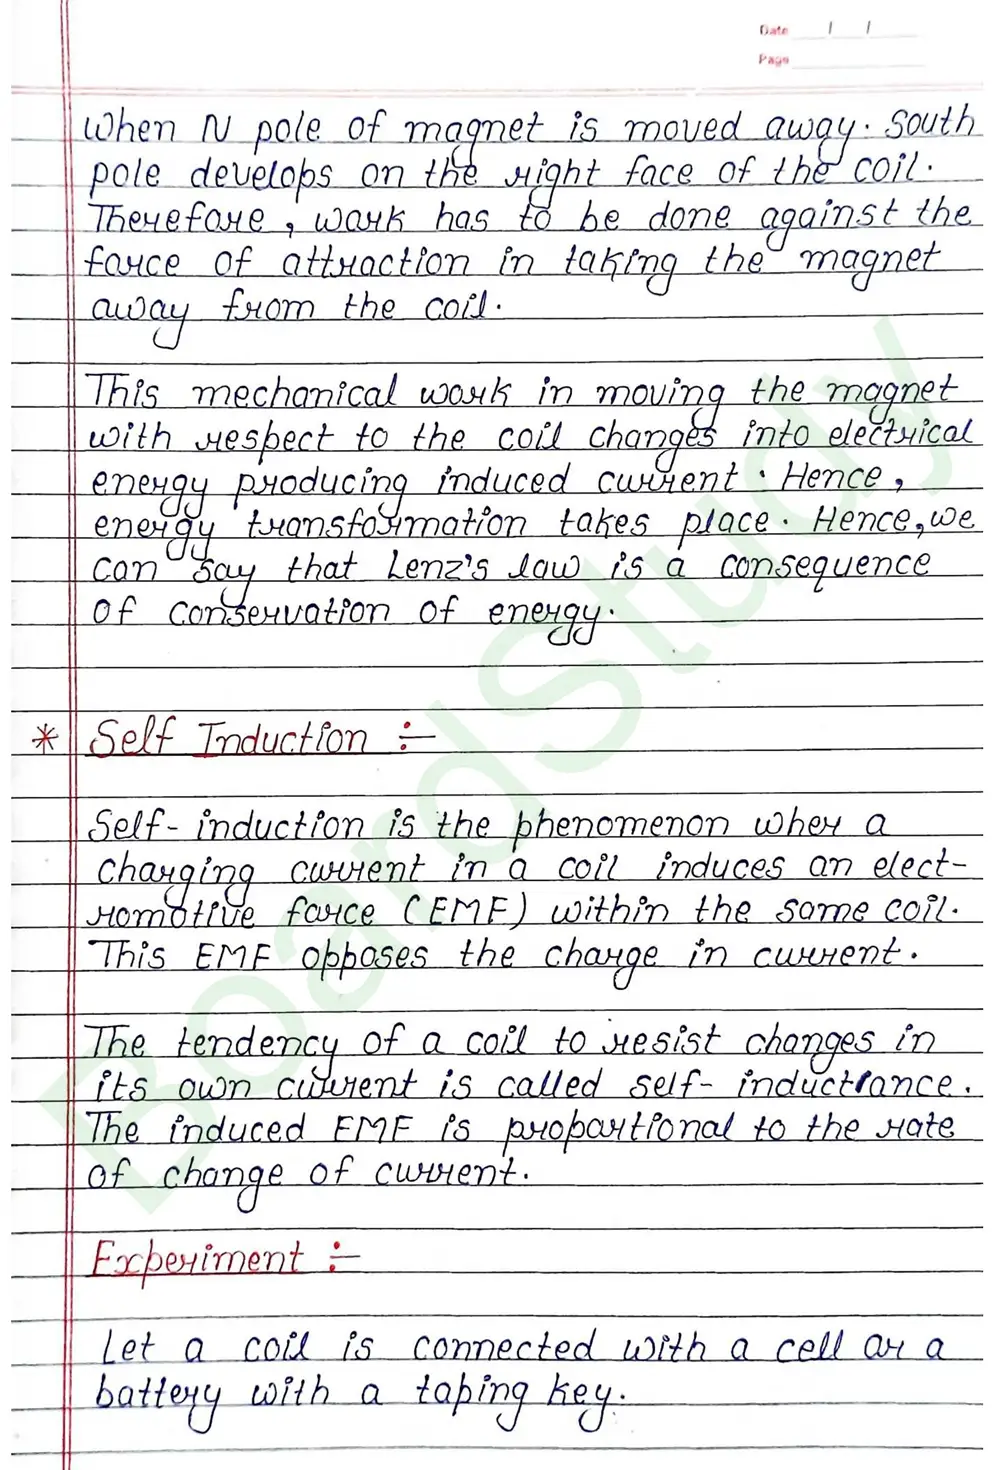 Date
Page
When N pole of magnet is moved away. South
pole develops on the right face of the coil.
Therefore, work has to be done against the
force of attraction in taking the magnet
away from the coil.
This mechanical work in moving the magnet
with respect to the coil changes into electrical
energy producing induced current. Hence,
energy transformation takes place. Hence, we
can say that Lenz's law is a consequence
of conservation of energy.
* Self Induction :-
Self-induction is the phenomenon wher a
charging current in a coil induces an elect-
romotive force (EMF) within the same coil.
This EMF opposes the charge in current.
The tendency of a coil to resist changes in
its own current is called self-inductrance.
The induced EMF is proportional to the rate
of change of current.
Experiment :-
Let a coil is connected with a cell or a
battery with a taping key.
BoardStudy